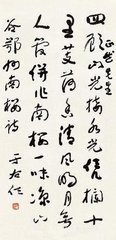 先生
四顧山光接水光憑欄十
里芰荷香清風明月無
人管併作南樓一味涼山
谷鄂州南樓詩
于右任